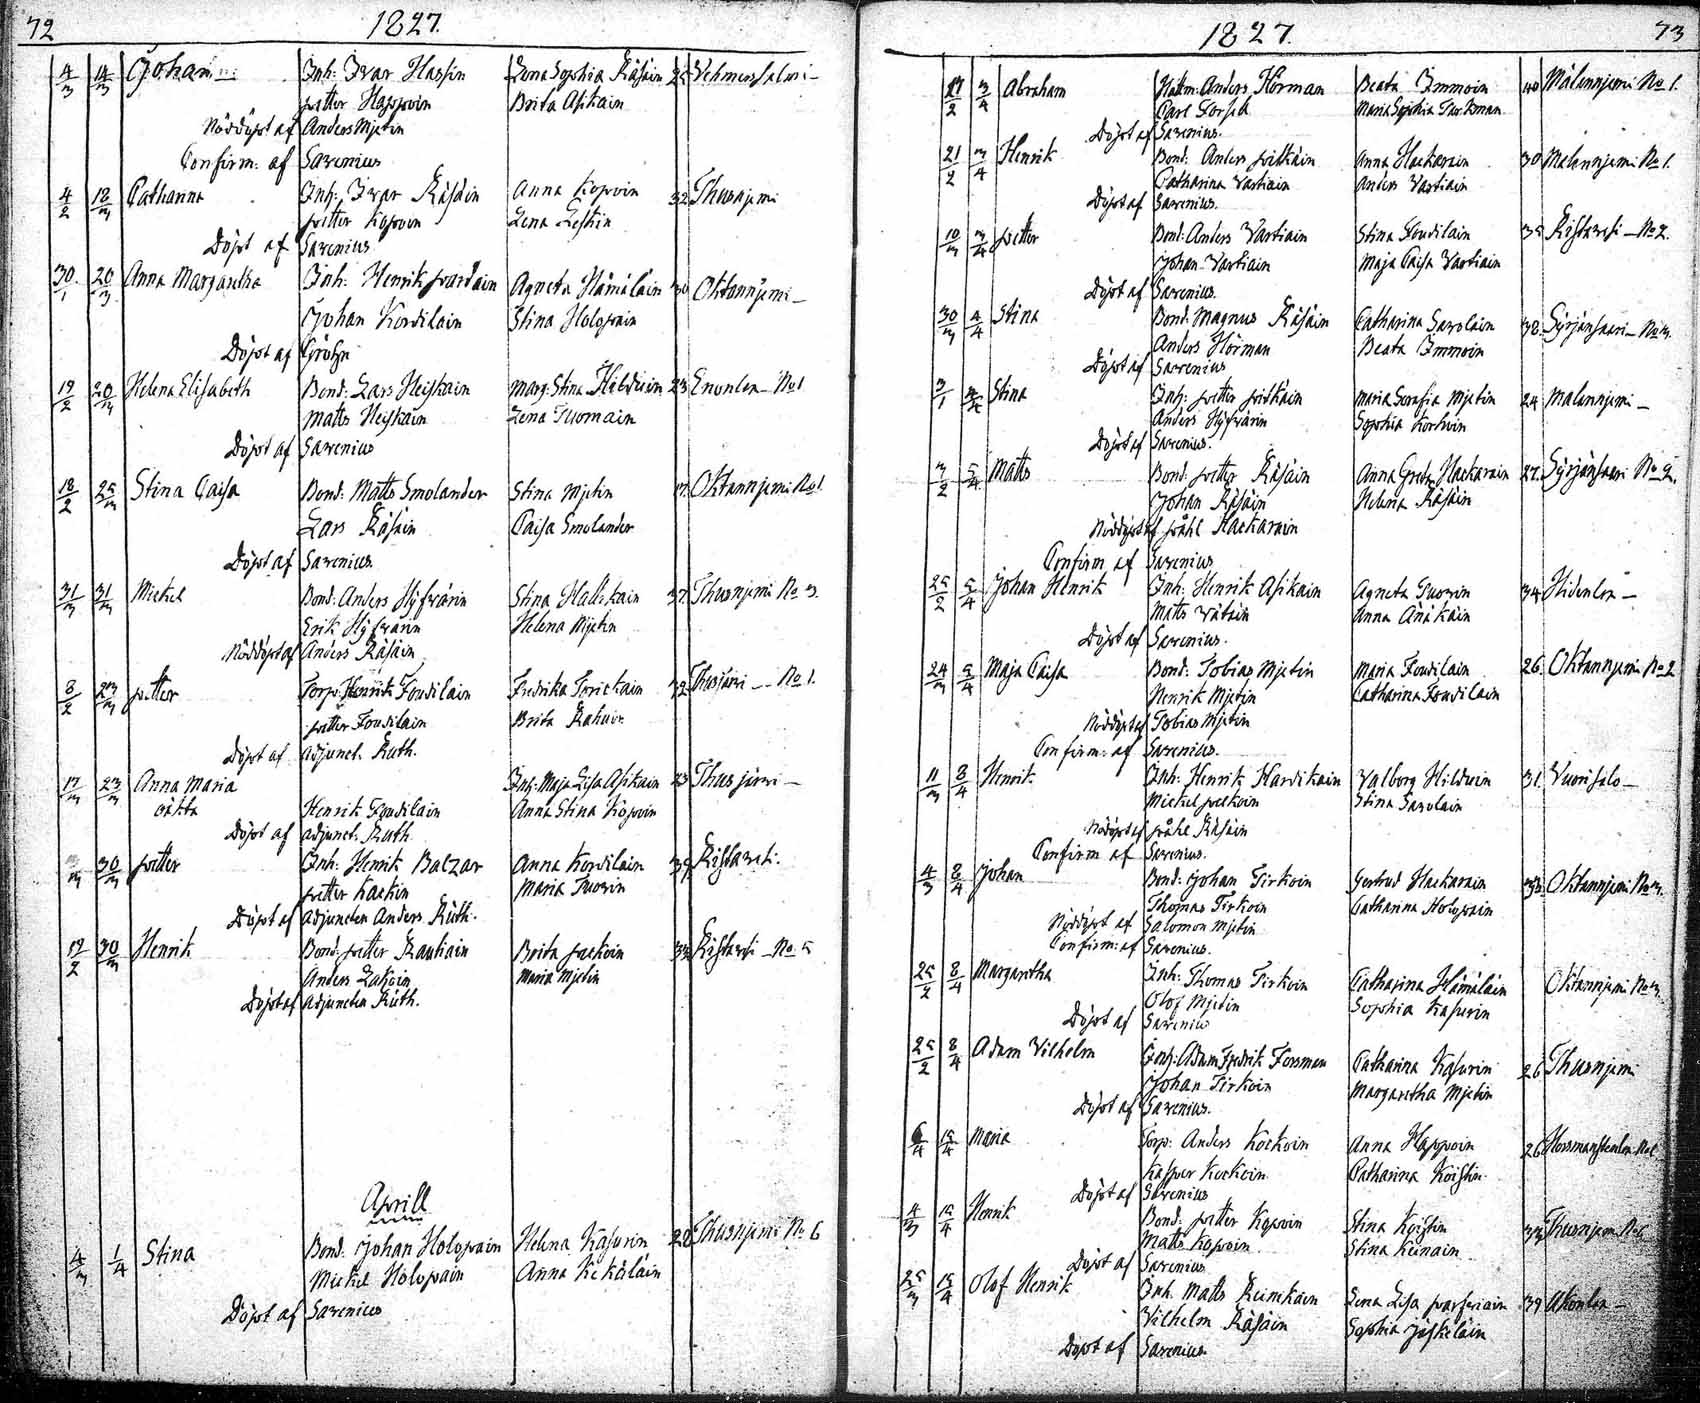 72
1827.
4/3 14/3 Johan Inh: Ivar Hassin Lena Sophia Räsäin 22 Vehmersalmi
Petter Happoin Brita Asikain
Nöddöpt af Anders Mjetin
Confirm: af Savenius
4/2 18/3 Catharina Inh: Ivar Räsäin Anna Kopoin 32 Thusnjemi
Petter Kopoin Lena Leskin
Döpt af Savenius
30/1 20/3 Anna Margaretha Inh: Henrik Pardain Agneta Hämäläin 30 Oktannjemi
Johan Kordilain Stina Holopain
Döpt af Gröhn
19/2 20/3 Helena Elisabeth Bond: Lars Heiskain Marg: Stina Hilduin 23 Enonlax No 1
Matts Heiskain Lena Tuomain
Döpt af Savenius
18/2 25/3 Stina Caisa Bond: Matts Smolander Stina Mjetin 17. Oktannjemi No 1
Lars Räsäin Caisa Smolander
Döpt af Savenius
31/3 31/3 Mickel Bond: Anders Hyfvärin Stina Hallikain 37. Thusnjemi No 3.
Erik Hyfvärin Helena Mjetin
Nöddöpt af Anders Räsäin
8/2 23/3 Petter Torp: Henrik Foudilain Fredrika Torickain 32 Thusjärvi No 1.
Petter Foudilain Brita Rahuin
Döpt af adjunct. Ruth.
17/3 23/3 Anna Maria Inh: Maja Lisa Asikain 23 Thusjärvi
oäkta Henrik Foudilain Anna Stina Kopoin
Döpt af adjunct. Ruth
30/3 Petter Inh: Henrik Balzar Anna Kordilain 39 Ristavesi.
Petter Kackin Maria Tuovin
Döpt af adjuncten Anders Ruth.
19/2 30/3 Henrik Bond: Petter Rautiain Brita Packoin 32 Ristavesi No 5
Anders Lakoin Maria Mjetin
Döpt af adjuncten Ruth.
Aprill
4/3 1/4 Stina Bond: Johan Holopain Helena Kasurin 28 Thusnjemi No 6
Mickel Holopain Anna Kekäläin
Döpt af Savenius
1827.
73
27/2 3/4 Abraham Anders Hörman Beata Immoin 40 Målannjemi No 1.
Carl Maria Sophia
Döpt af Savenius.
21/2 3/4 Henrik Bond: Anders Pitkäin Anna Hackarain 30 Malannjemi No 1.
Catharina Vartiain Anders Vartiain
Döpt af Savenius.
10/3 3/4 Petter Bond: Anders Vartiain Stina Foudilain 35 Ristavesi No 2.
Johan Vartiain Maja Caisa Vartiain
Döpt af Savenius.
30/3 4/4 Stina Bond: Magnus Räsäin Catharina Savolain 38. Syrjänsaari No 3.
Anders Hörman Beata Immoin
Döpt af Savenius
3/1 4/4 Stina Inh: Petter Pitkäin Maria Serafia Mjetin 24 Malannjemi
Anders Hyfvärin Sophia Korhoin
Döpt af Savenius.
3/2 5/4 Matts Bond: Petter Räsäin Anna Greta Hackarain 27. Syrjänsaari No 2.
Johan Räsäin Helena Räsäin
Nöddöpt af Påhl Hackarain
Confirm af Savenius
25/2 5/4 Johan Henrik Inh: Henrik Asikain Agneta Tuovin 34 Hidenlax
Matts Vätäin Anna Änäkäin
Döpt af Savenius.
24/3 5/4 Maja Caisa Bond: Tobias Mjetin Maria Foudilain 26. Oktannjemi No 2
Henrik Mjetin Catharina Foudilain
Nöddöpt af Tobias Mjetin
Confirm: af Savenius.
11/3 8/4 Henrik Inh: Henrik Hardikain Valborg Hilduin 31. Vuorisalo
Mickel Peckoin Stina Savolain
Nöddöpt af Påhl Räsäin
Confirm af Savenius.
4/3 8/4 Johan Bond: Johan Tirkoin Gertrud Hackarain 38. Oktannjemi No 3.
Thomas Tirkoin Catharina Holopain
Nöddöpt af Salomon Mjetin
Confirm: af Savenius.
25/2 8/4 Margaretha Inh: Thomas Tirkoin Catharina Hämäläin Oktannjemi No 3
Olof Mjetin Sophia Kasurin
Döpt af Savenius
25/2 8/4 Adam Vilhelm Inh: Adam Fredrik Forsman Catharina Kasurin 26 Thusnjemi
Johan Tirkoin Margaretha Mjetin
Döpt af Savenius.
6/4 15/4 Maria Torp: Anders Kockoin Anna Happoin 26
Kasper Kockoin Catharina Koistin.
Döpt af Savenius
4/3 15/4 Henrik Bond: Petter Kopoin Stina Koistin 33 Thusnjemi No 6
Matts Kopoin Stina Keinain
Döpt af Savenius
25/3 15/4 Olof Henrik Inh. Matts Reinikain Lena Lisa Parsiain 39 Akonlax
Vilhelm Räsäin Sophia Jäskeläin
Döpt af Savenius